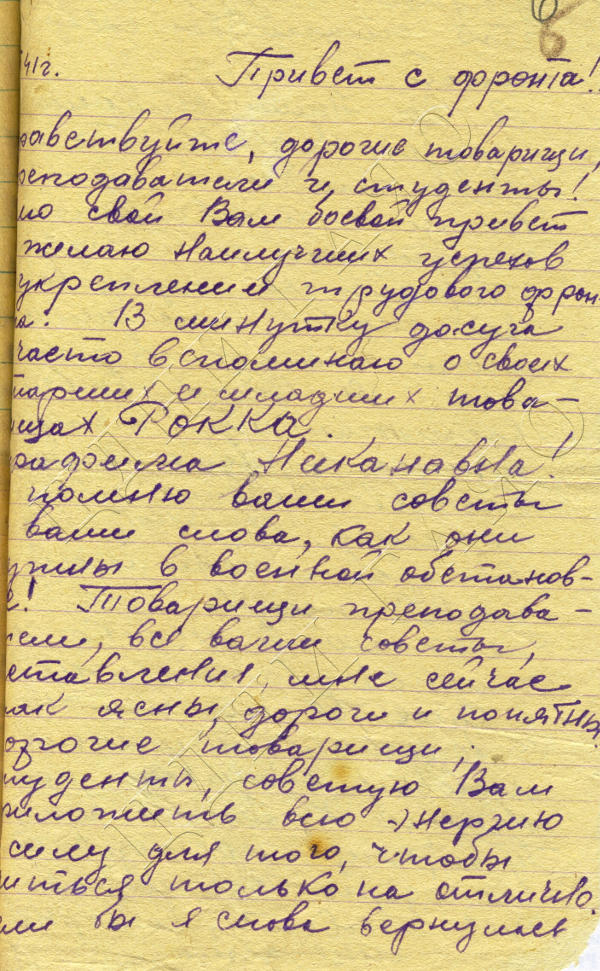 41г. Привет с фронта!
равствуйте, дорогие товарищи,
реподаватели и студенты!
лю свой Вам боевой привет
желаю наилучших успехов
укреплении трудового фрон-
та. В минутку досуга
часто вспоминаю о своих
тарших и младших това-
ищах РОККА.
рафима Никанавна!
помню ваши советы
ваши слова, как они
ужны в военной обстанов-
е! Товарищи преподава-
тели, все ваши советы,
ставления, мне сейчас
так ясны, дороги и понятны.
орогие товарищи,
туденты, советую Вам
риложить всю энергию
силу для того, чтобы
читься только на отлично.
сли бы я снова вернулась